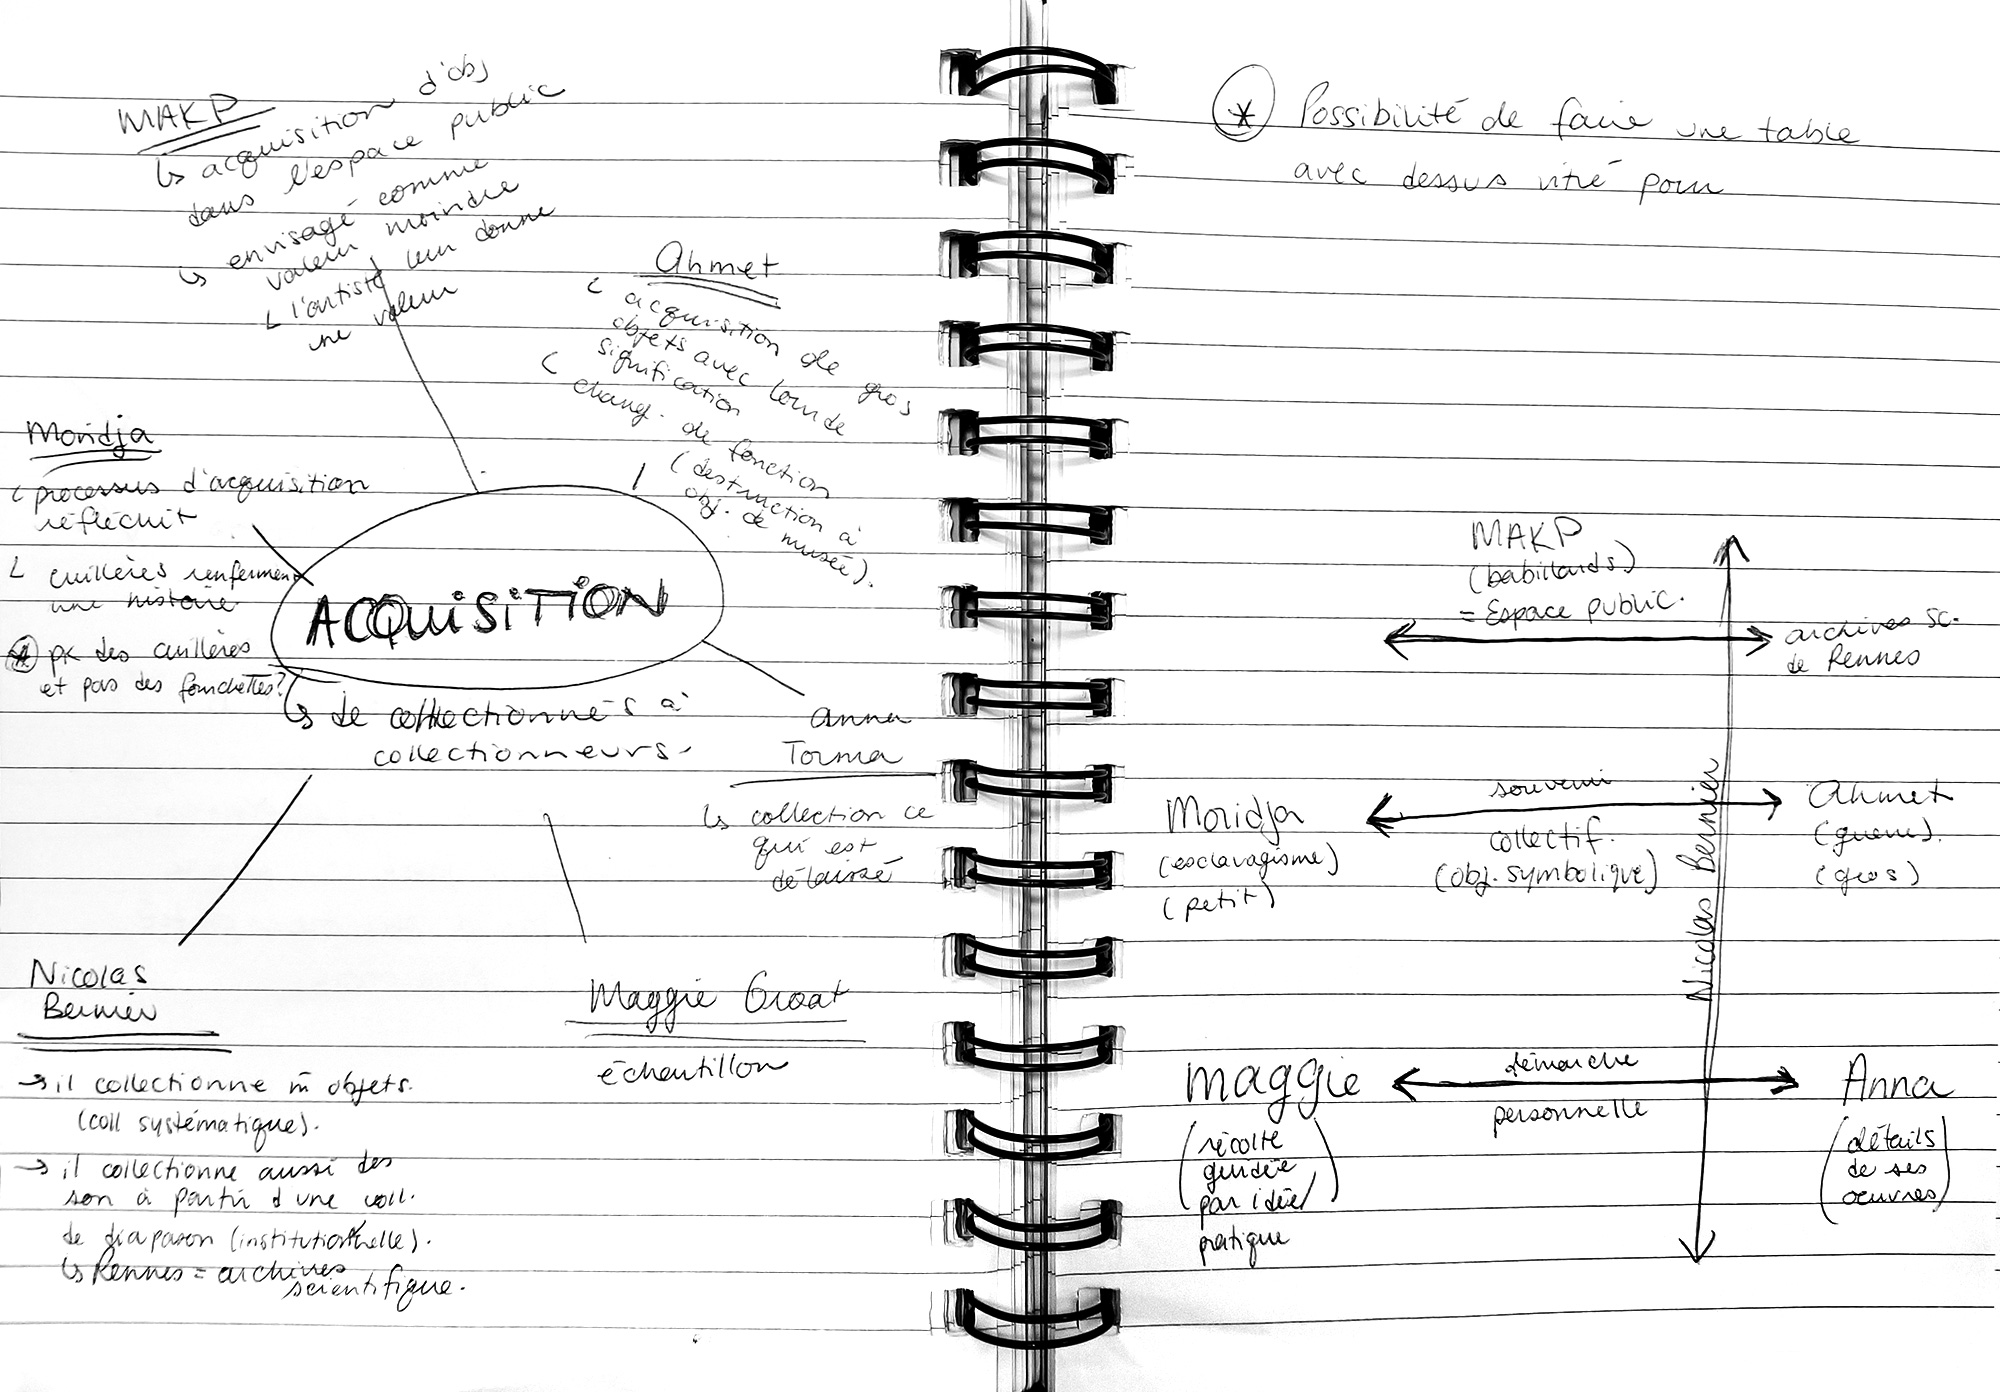 MAKP
↳ acquisition d'obj
dans l'espace public
↳ envisagé comme
valeur moindre
L l'artiste leur donne
une valeur
Ahmet
L acquisition de gros
objets avec lourde
signification
L chang. de fonction
(destruction à
obj. de musée).
Moridja
L processus d'acquisition
réfléchit
L cuillères renferment
une histoire
* pk des cuillères
et pas des fourchettes?
ACQUISITION
↳ de collectionnés à
collectionneurs.
Anna
Torma
↳ collection ce
qui est
délaissé
Nicolas
Bernier
→ il collectionne m̄ objets.
(coll systématique).
→ il collectionne aussi des
son à partir d'une coll.
de diapason (institutionnelle).
↳ Rennes = archives
scientifique.
Maggie Groat
échantillon
* Possibilité de faire une table
avec dessus vitré pour
MAKP
(babillards)
= Espace public.
archives sc.
de Rennes
Nicolas Bernier
Moridja
(esclavagisme)
(petit)
souvenir
collectif.
(obj. symbolique)
Ahmet
(guerre).
(gros)
Maggie
(récolte
guidée
par idée/
pratique)
démarche
personnelle
Anna
(détails
de ses
oeuvres)